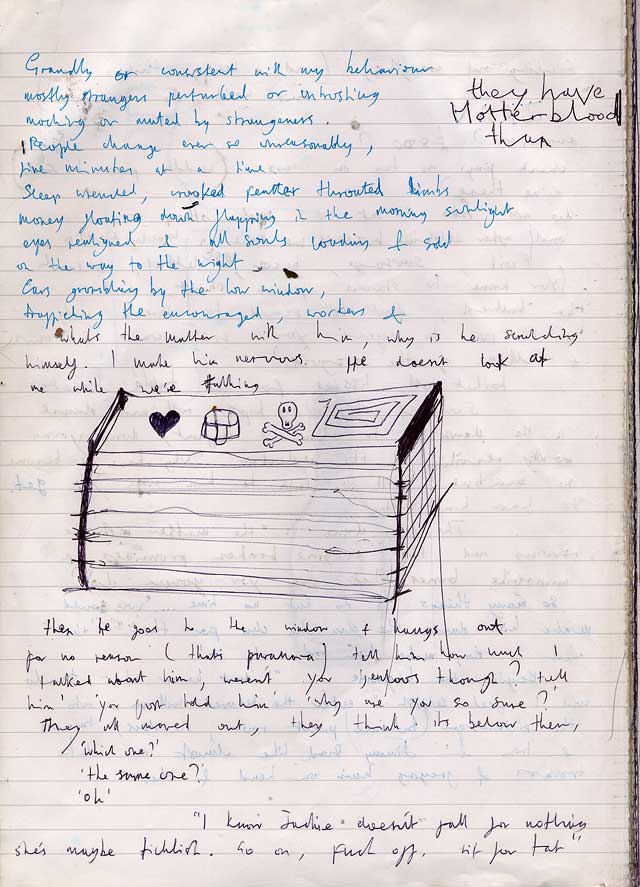 Grandly or consistent with my behaviour
mostly strangers perturbed or intrusting
mocking or muted by strangeness.
People change ever so unreasonably,
five minutes at a time
Sleep wrended, crooked throated limbs
money floating down flapping in the morning sunlight
eyes realigned & all souls loading & sold
on the way to the night
Ears grovelling by the low window,
trafficking the encouraged, workers &
they have
Hotter blood
than
whats the matter with him, why is he scratching
himself. I make him nervous. He doesn't look at
me while we're talking
then he goes to the window & hangs out
for no reason (thats paranoia) tell him how much I
talked about him, weren't you jealous though? tell
him' 'you just told him' 'why are you so sure?'
They all moved out, they think its below them,
'which one?'
'the same one?'
'oh'
"I know Jackie doesn't fall for nothing
she's maybe ticklish. Go on, fuck off, tit for tat"